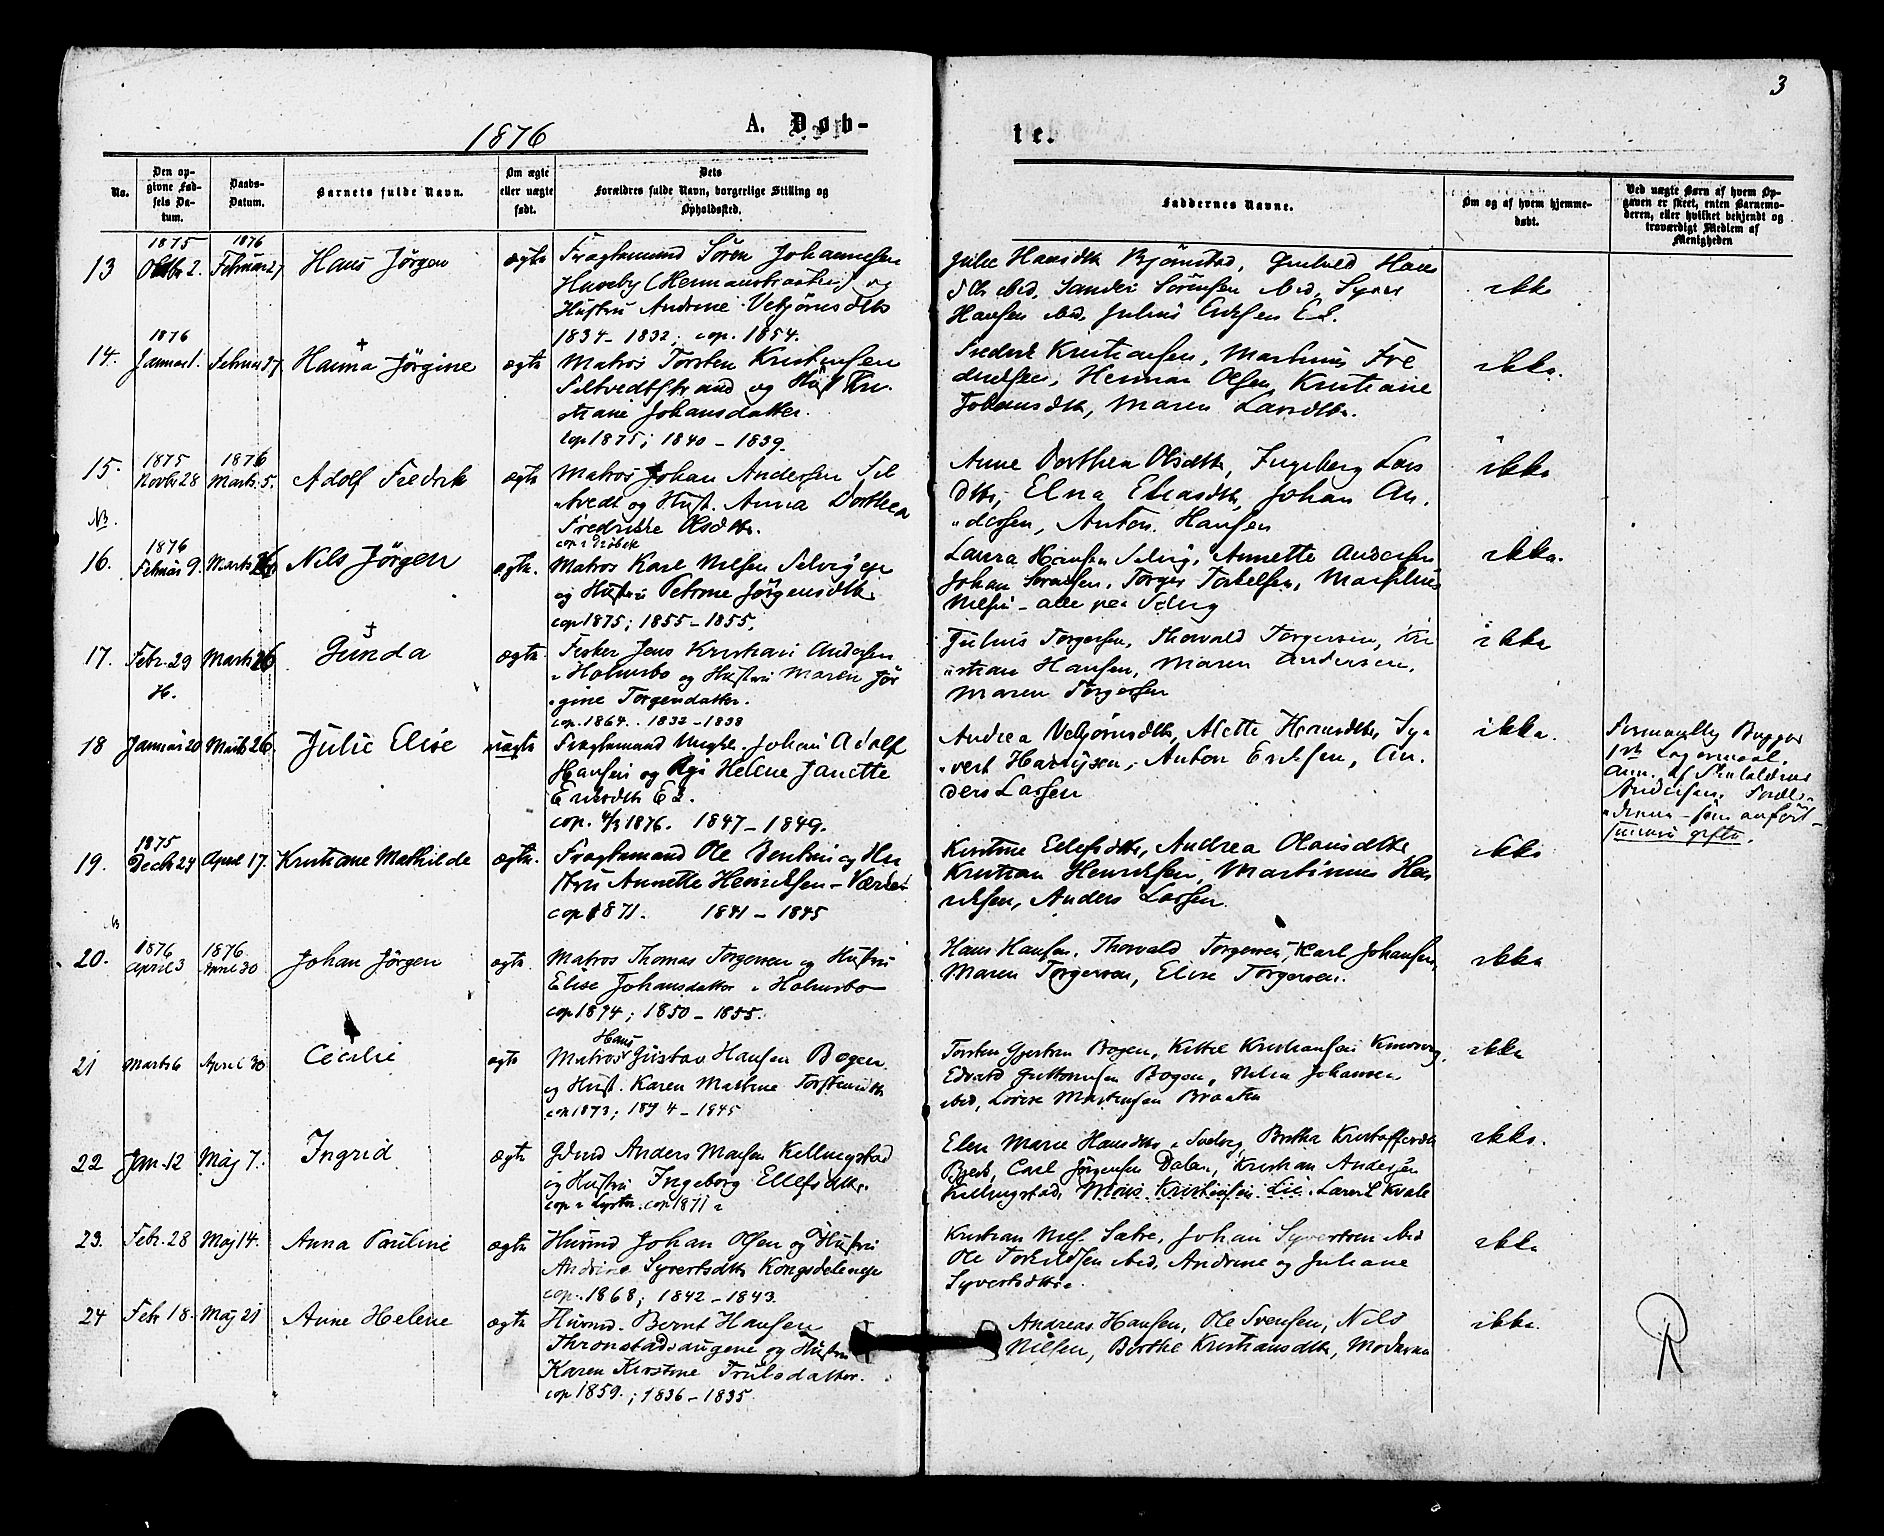 3
1876
A. Døb-
te.
No.
Den op-
givne Fød-
sels Da-
tum.
Daabs-
Datum.
Barnets fulde Navn.
Om ægte
eller uægte
født.
Dets
Forældres fulde Navn, borgerlige Stilling og
Opholdssted.
Faddernes Navne.
Om og af hvem hjemme-
døbt.
Ved uægte Børn af hvem Op-
gaven er skeet, enten Barnemo-
deren, eller hvilket bekjendt og
troværdigt Medlem af
Menigheden
13
1875
Oktbr 2.
1876
Februar 27
Hans Jörgen
ægte
Fragtemand Sören Johannesen
Huseby og
Hustru Andrine Vebjörnsdtr
1834 - 1832; cop. 1854.
Julie Hansdtr Björnstad,
ibid, Sander Sörensen ibid, Syver
Hansen ibd, Julius
ikke
14.
1876
Januar 1.
Februar 27
Hanna Jörgine
ægte
Matros Torsten Kristensen
Selvedtstrand og Hust Kri
stiane Johansdatter.
cop 1875; 1840 - 1839.
Fredrik Kristiansen, Martinius Fre
driksen, Herman Olsen, Kristiane
Johansdtr, Maren Larsdtr.
ikke.
15.
1875
Novbr 28
1876
Marts 5.
Adolf Fredrik
ægte
Matros Johan Andersen Sel
vedt og Hust. Anna Dorthea
Fredrikke Olsdtr.
cop i Dröbak
Anne Dorthea Olsdtr, Ingeborg Lars
dtr, Elna Eliasdtr, Johan An-
dersen, Anton Hansen
ikke
16.
1876
Februar 9.
Marts 26
Nils Jörgen
ægte.
Matros Karl Nilsen Selvig eje
og Hustru Petrine Jörgensdtr
cop 1875; 1855 - 1855.
Laura Hansen Selvig, Annette Andersen
Johan Sörensen, Torger Torkelsen, Marselius
Nilsen - alle paa Selvig
ikke.
17.
Febr. 29
H.
Marts 26
Gunda
ægte
Fisker Jens Kristian Andersen
i Holmsbo og Hustru Maren Jör
gine Torgersdatter.
cop. 1864. 1832 - 1838
Julius Torgersen, Thorvald Torgersen, Kri
stian Hansen, Maren Andersen,
Maren Torgersen
ikke
18
Januar 20
Marts 26
Julie Elise
uægte
Fragtemand Ungkr. Johan Adolf
Hansen og Pige Helene Janette
Eriksdtr
cop. 4/3 1876. 1847 - 1849.
Andrea Vebjörnsdtr, Mette Hansdtr, Sy-
vert Hansen, Anton Eriksen, An
ders Larsen
ikke.
1st Logermaal.
Anm. af
Andersen.
19.
1875
Decbr 24
April 17.
Kristiane Mathilde
ægte.
Fragtemand Ole Bentsen og Hu
stru Annette Henriksen
cop 1871. 1841 - 1845
Kirstine Ellefsdtr, Andrea Olausdtr
Kristian Henriksen, Martinius Hen
riksen, Anders Larsen
ikke
20.
1876
April 3
1876
April 30
Johan Jörgen
ægte
Matros Thomas Torgersen og Hustru
Elise Johansdatter i Holmsbo
cop 1874; 1850 - 1855.
Hans Hansen, Thorvald Torgersen, Karl Johansen,
Maren Torgersen, Elise Torgersen.
ikke
21
Marts 6
April 30
Cecilie
ægte
Hans
Matros Gustav Hansen Bogen
og Hust. Karen Martine Torstensdtr
cop 1873; 1844 - 1845
Torsten Gjertsen Bogen, Kittil Kristiansen
Edvard Guttormsen Bogen, Nilia Johansen
ibid, Lovise Martinsen Braaten
ikke
22
Jan. 12
Maj 7.
Ingrid
ægte
Anders Monsen Kellingstad
og Hustru Ingeborg Ellefsdtr.
cop. 1871
Elen Marie Hansdtr i Svelvig, Berthe Kristoffersdtr
Carl Jörgensen Dalen, Kristian Andersen
Kellingstad, Mons Kristensen Lie.
ikke.
23.
Febr. 28
Maj 14.
Anna Pauline
ægte
Husmd Johan Olsen og Hustru
Andrine Syvertsdtr Kongsdeleneje
cop. 1868; 1842 - 1843.
Kristian Nils. Sætre, Johan Syvertsen ibid
Ole Torkildsen ibid, Andrine og Juliane
Syvertsdtr.
ikke
24
Febr 18.
Maj 21
Anne Helene
ægte
Husmd. Bernt Hansen
Thronstadsaugene og Hustru
Karen Kirstine Trulsdatter.
cop 1859.; 1836 - 1835.
Andreas Hansen, Ole Svensen, Nils
Nilsen, Berthe Kristiansdtr, Moderen
ikke.
R